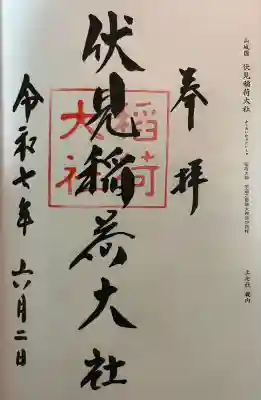 山城国 伏見稲荷大社
奉拝
伏見稲荷大社
稲荷
大社
令和七年 六月二日